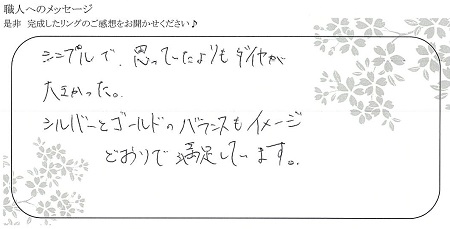 職人へのメッセージ
是非 完成したリングのご感想をお聞かせください♪
シンプルで、思っていたよりもダイヤが
大きかった。
シルバーとゴールドのバランスもイメージ
どおりで満足しています。